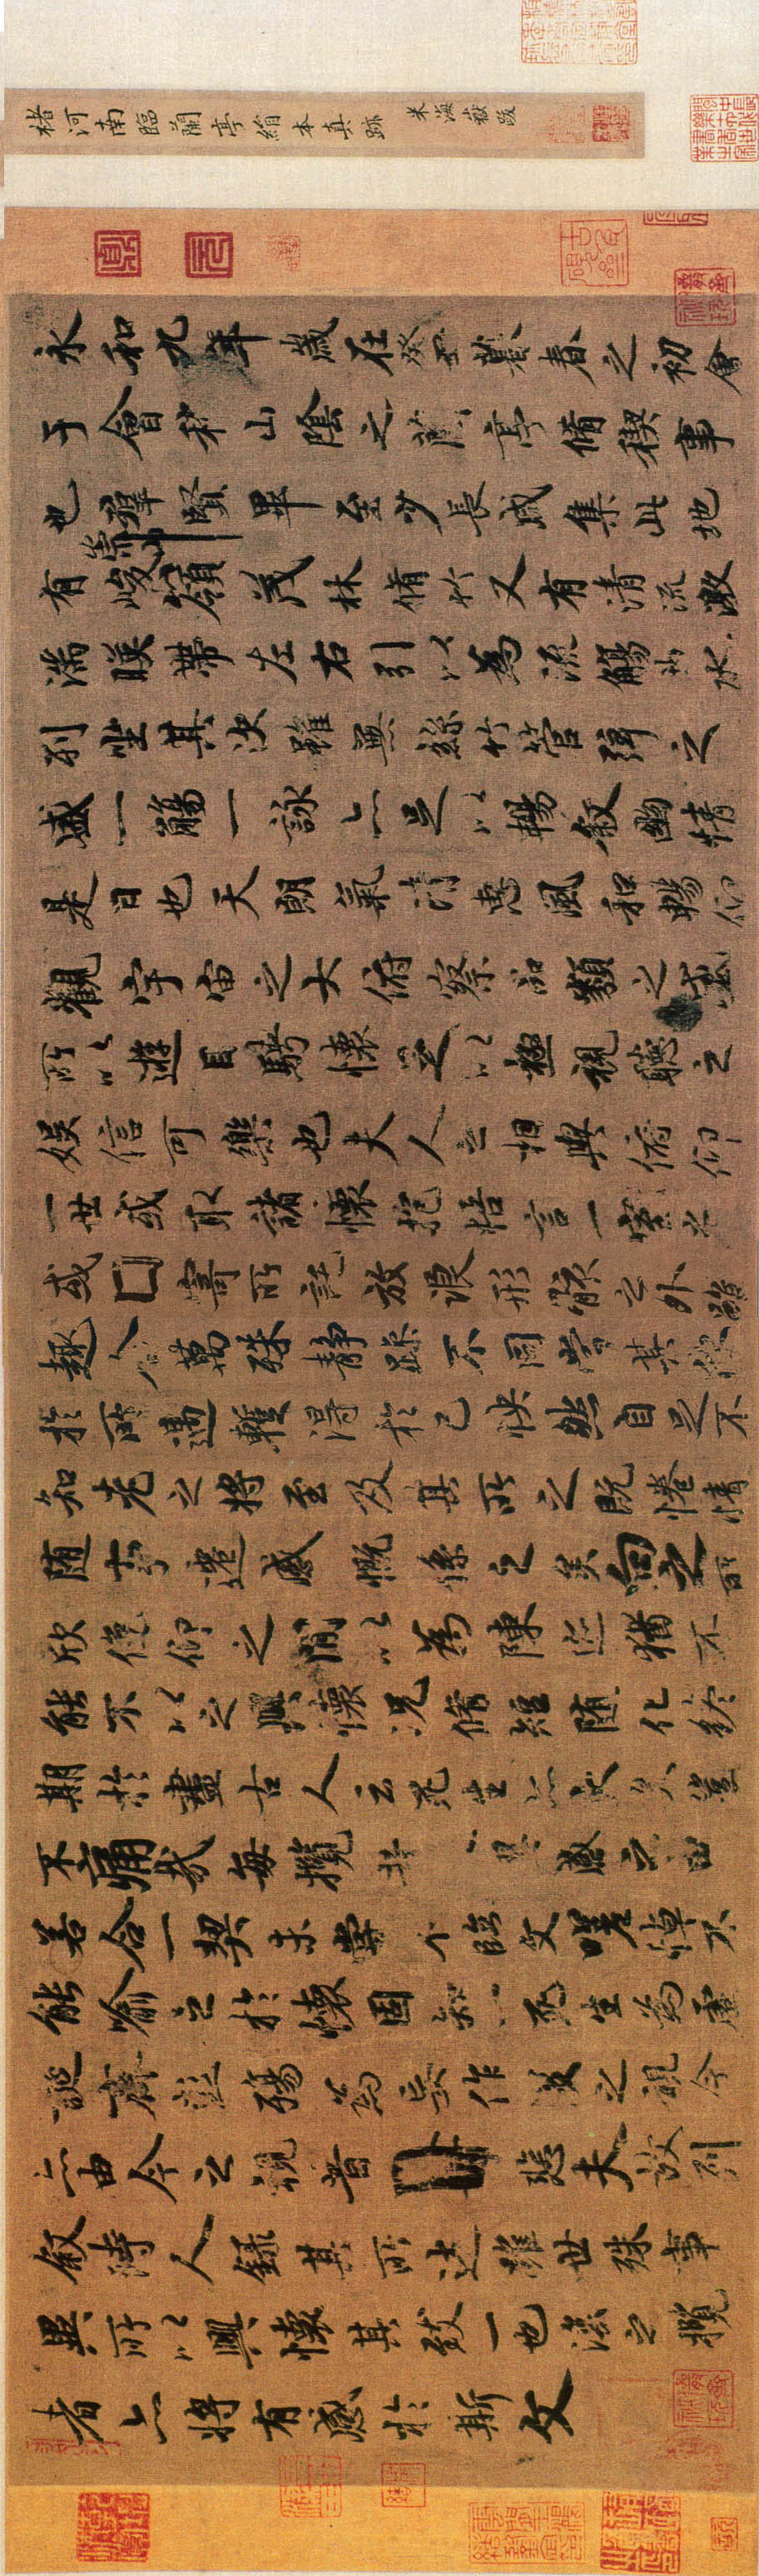 褚河南臨蘭亭絹本真跡 米海嶽跋
永和九年歲在癸丑暮春之初會
于會稽山陰之蘭亭脩稧事
也羣賢畢至少長咸集此地
有崇山峻領茂林脩竹又有清流激
湍暎帶左右引以為流觴曲水
列坐其次雖無絲竹管弦之
盛一觴一詠亦足以暢敘幽情
是日也天朗氣清惠風和暢仰
觀宇宙之大俯察品類之盛
所以遊目騁懷足以極視聽之
娛信可樂也夫人之相與俯仰
一世或取諸懷抱悟言一室之
或寄所託放浪形骸之外雖
趣舍萬殊靜躁不同當其欣
於所遇暫得於己快然自足不
知老之將至及其所之既惓情
隨事遷感慨係之矣向之所
欣俛仰之閒以為陳迹猶不
能不以之興懷況脩短隨化終
期於盡古人云死生亦大矣豈
不痛哉每攬昔興感之由
若合一契未嘗不臨文嗟悼不
能喻之於懷固知一死生為虛
誕齊彭殤為妄作後之視今
亦由今之視昔悲夫故列
敘時人錄其所述雖世殊事
異所以興懷其致一也後之攬
者亦將有感於斯文